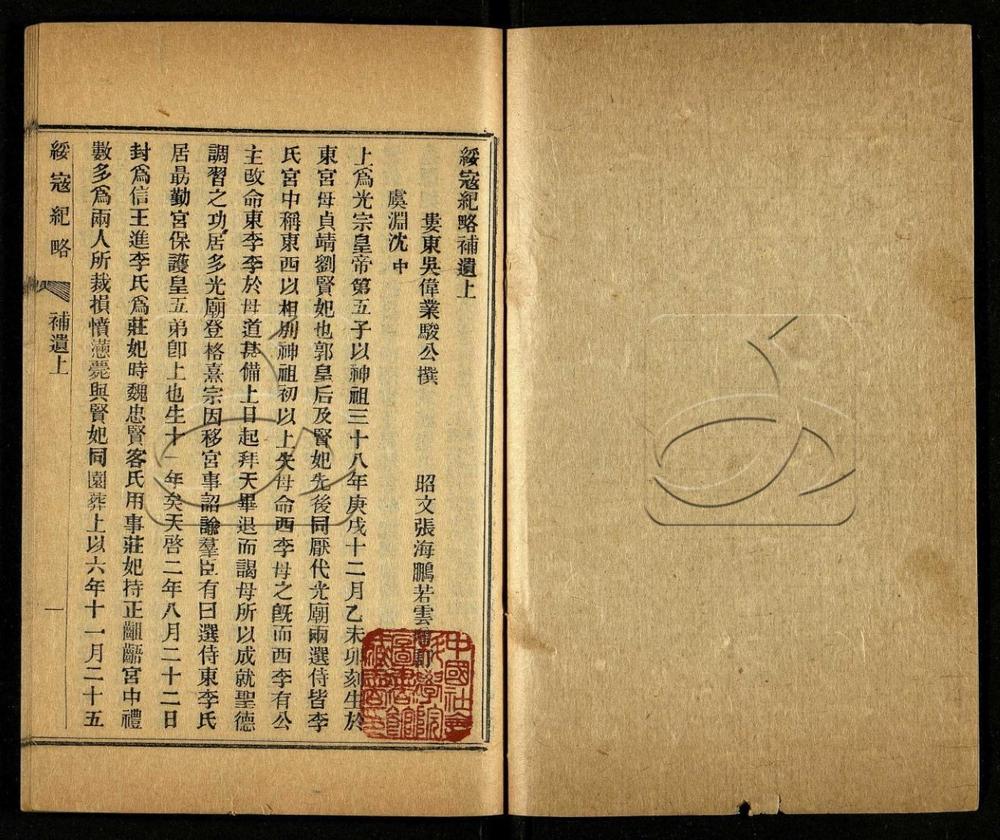 綏寇紀略補遺上
婁東吳偉業駿公撰 昭文張海鵬若雲訂
虞淵沈中
上爲光宗皇帝第五子以神祖三十八年庚戌十二月乙未卯刻生於
東宮母貞靖劉賢妃也郭皇后及賢妃先後同厭代光廟兩選侍皆李
氏宮中稱東西以相別神祖初以上失母命西李母之旣而西李有公
主改命東李李於母道甚備上日起拜天畢退而謁母所以成就聖德
調習之功居多光廟登格熹宗因移宮事詔諭羣臣有曰選侍東李氏
居勗勤宮保護皇五弟卽上也生十一年矣天啓二年八月二十二日
封爲信王進李氏爲莊妃時魏忠賢客氏用事莊妃持正齟齬宮中禮
數多爲兩人所裁損憤懣薨與賢妃同園葬上以六年十一月二十五
綏寇紀略 補遺上 一
中國社會
科學院
圖書館
藏書印